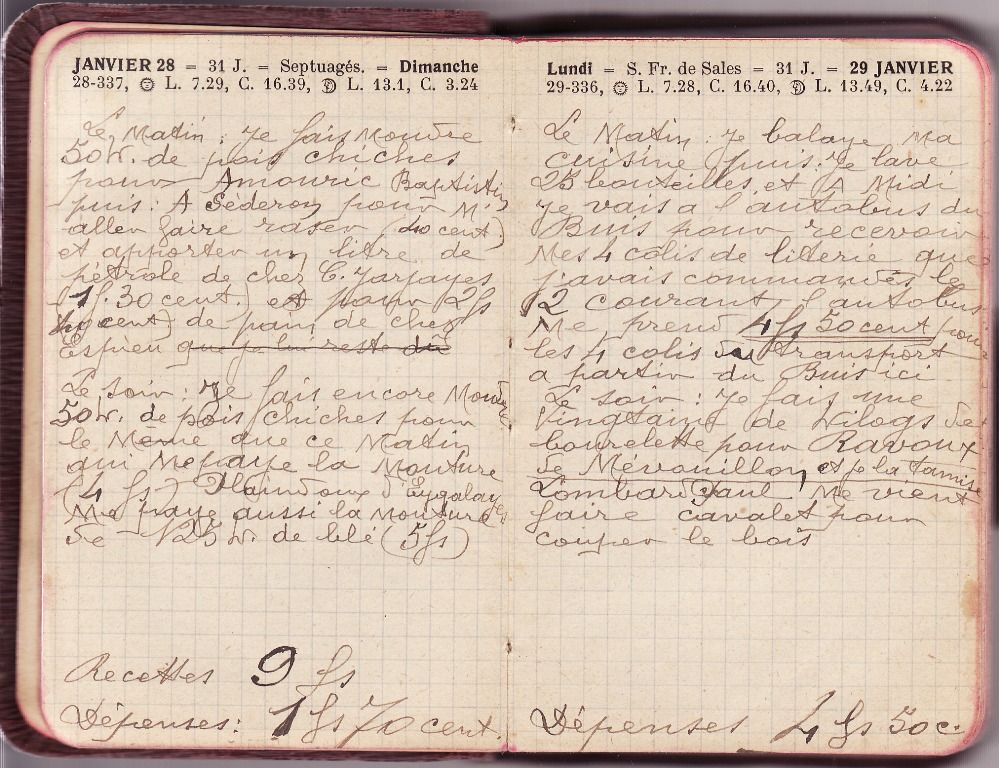 JANVIER 28 = 31 J. = Septuagés. = Dimanche
28-337, L. 7.29, C. 16.39, L. 13.1, C. 3.24
Le Matin : Je fais Moudre
50 K. de pois chiches
pour Amouric Baptistin
puis : A Séderon pour M'
aller faire raser (40 cent)
et apporter un litre de
pétrole de chez C. Jarjayes
1f. 30 cent.) et pour 2fs
cent) de pain de chez
Espieu que je lui reste du
Le soir : Je fais encore Moudre
50 K. de pois chiches pour
le Meme que ce Matin
qui Me paye la Mouture
(4 fs) Plaindoux d'Eygalayes
Me paye aussi la Mouture
de 125 K. de blé (5fs)
Recettes 9 fs
Dépenses : 1 fs 70 cent.
Lundi = S. Fr. de Sales = 31 J. = 29 JANVIER
29-336, L. 7.28, C. 16.40, L. 13.49, C. 4.22
Le Matin : Je balaye Ma
cuisine puis : Je lave
25 bouteilles et A Midi
Je vais a l'autobus du
Buis pour recevoir
Mes 4 colis de literie que
j'avais commandés le
12 courant l'autobus
Me prend 4 fs 50 cent pour
les 4 colis du transport
a partir du Buis ici
Le soir : Je fais une
Vingtaine de Kilogs de
bourelette pour Ravoux
de Mévouillon et je la tamise
Lombard Paul Me vient
faire cavalet pour
couper le bois
Dépenses 4 fs 50 c.